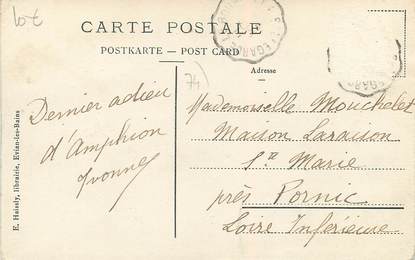 CARTE POSTALE
POSTKARTE — POST CARD
Adresse
74)
Dernier adieu
d'Amphion
Yvonne
Mademoiselle Mouchelet
Maison
Ste Marie
près Pornic
Loire Inférieure
E. Huissly, librairie, Evian-les-Bains